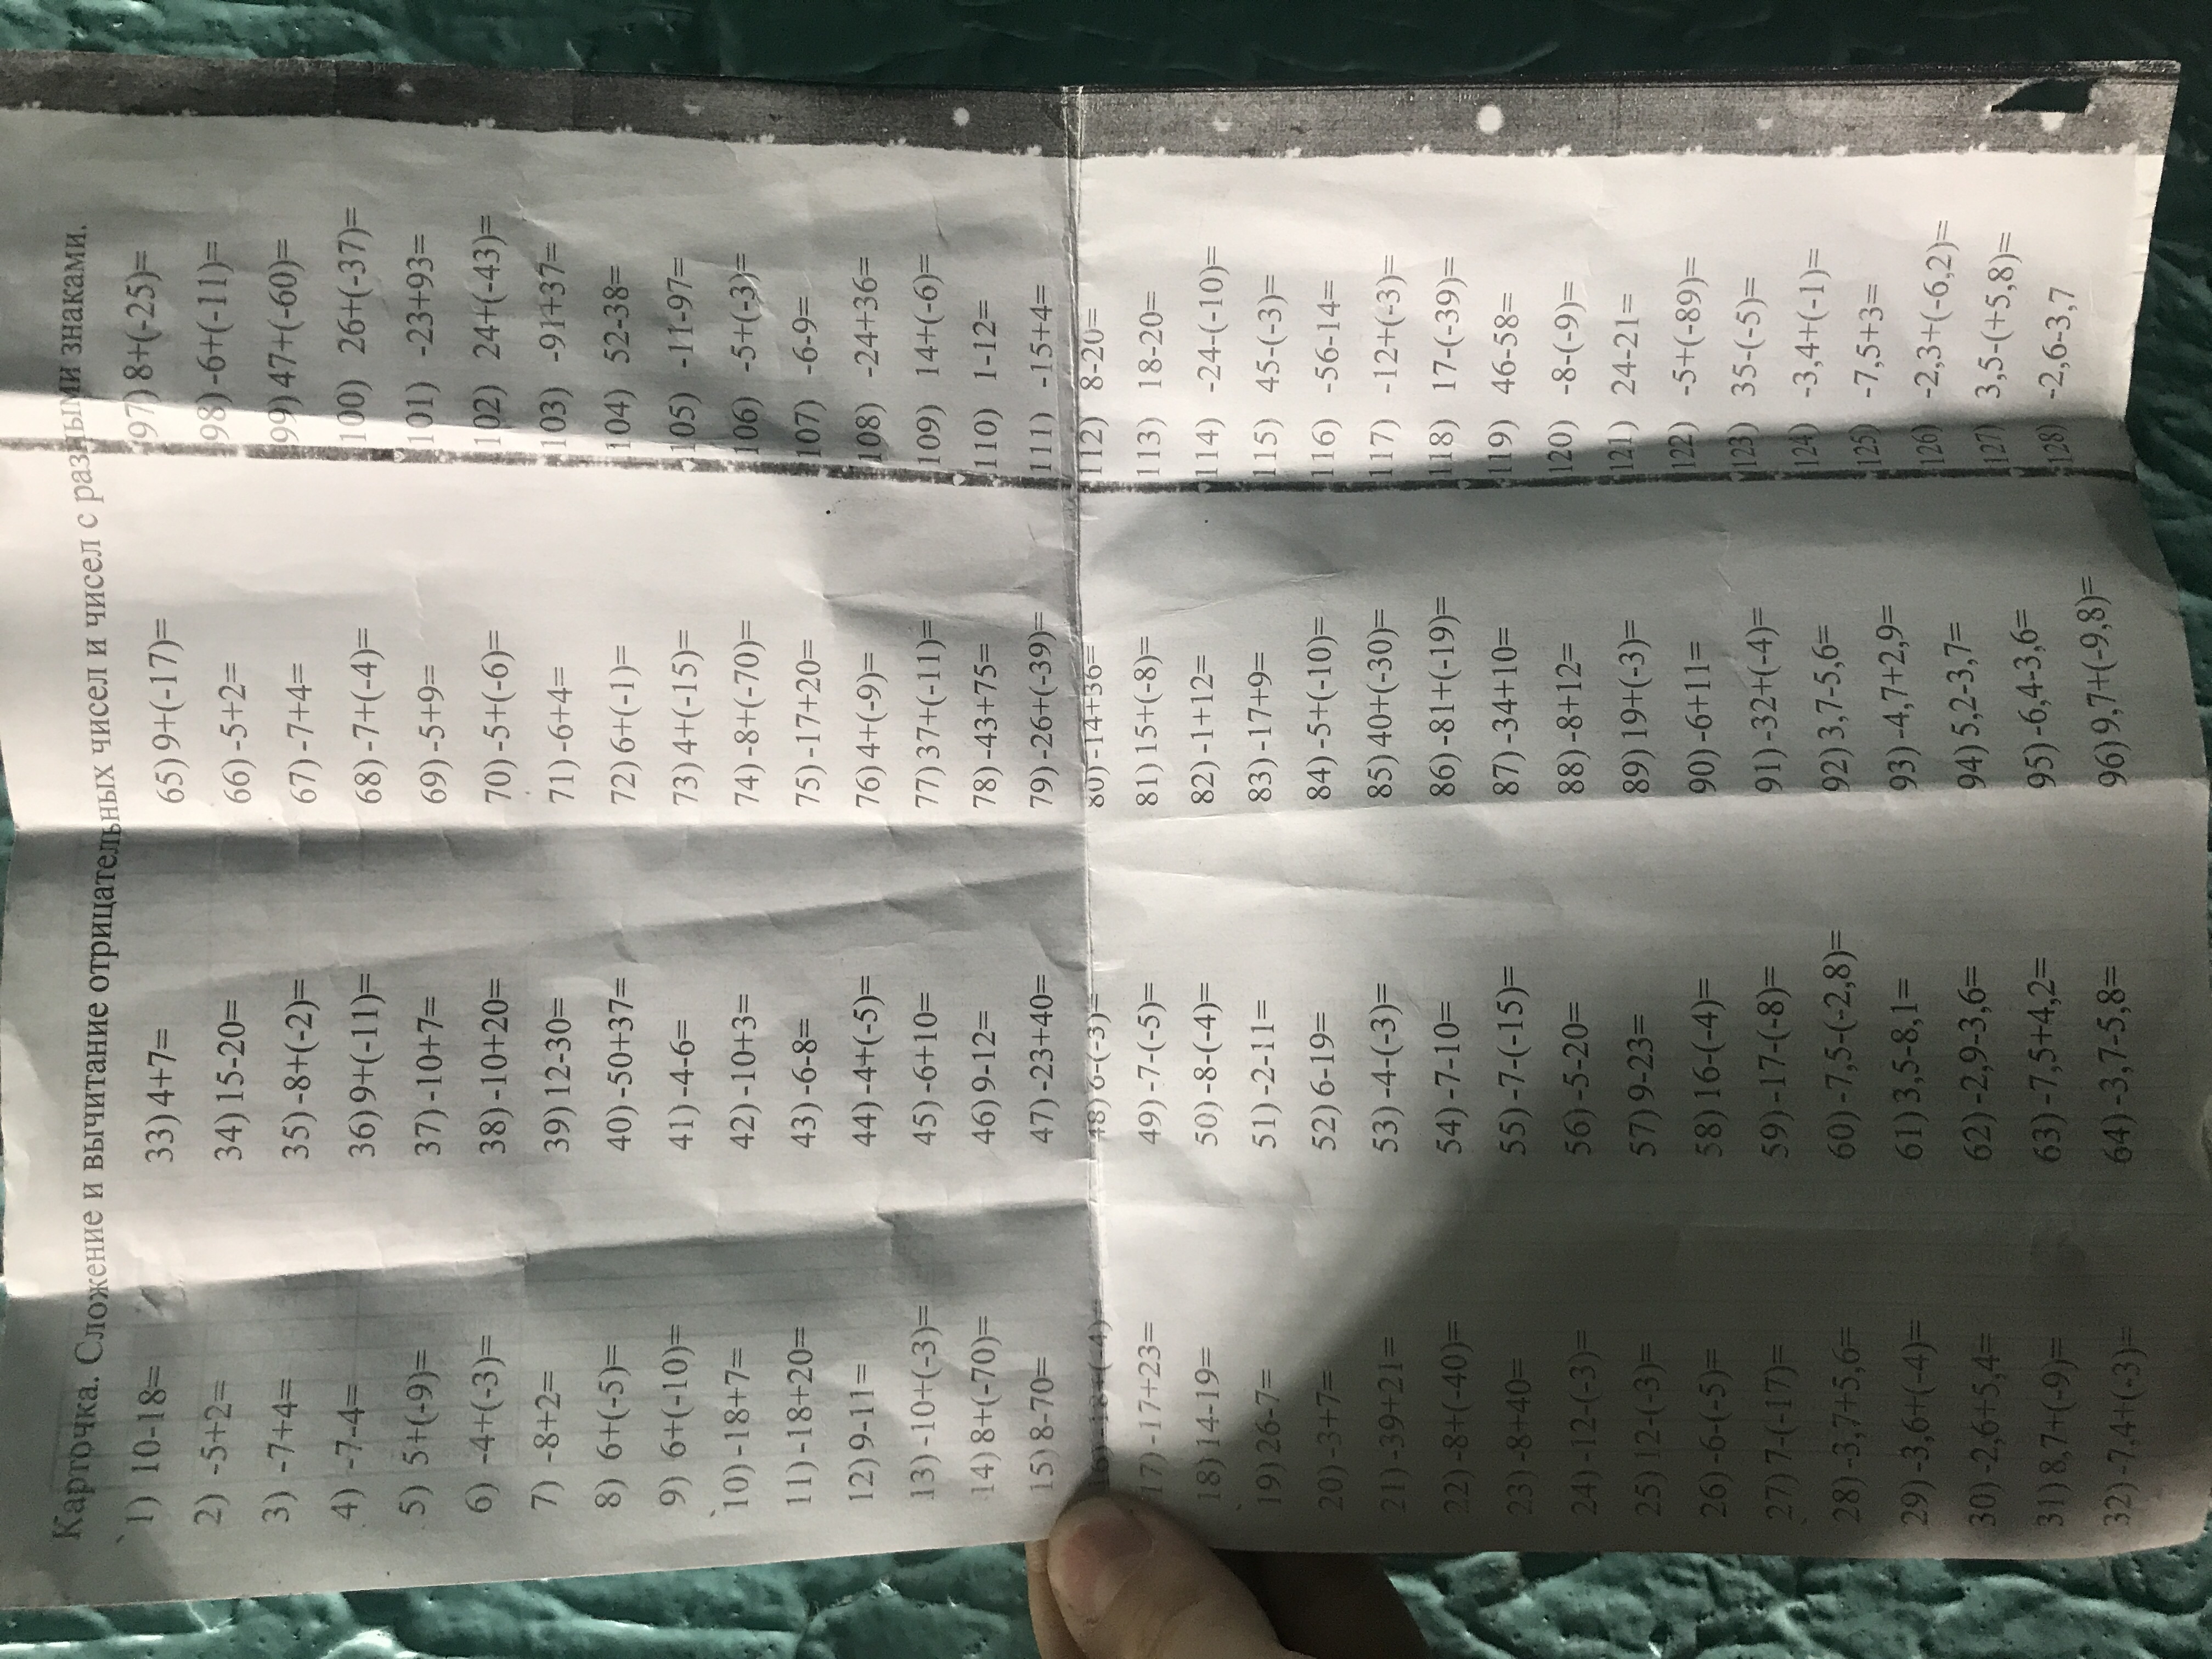 Карточка. Сложение и вычитание отрицательных чисел и чисел с разными знаками.
1) 10-18=
2) -5+2=
3) -7+4=
4) -7-4=
5) 5+(-9)=
6) -4+(-3)=
7) -8+2=
8) 6+(-5)=
9) 6+(-10)=
10) -18+7=
11) -18+20=
12) 9-11=
13) -10+(-3)=
14) 8+(-70)=
15) 8-70=
16)
17) -17+23=
18) 14-19=
19) 26-7=
20) -3+7=
21) -39+21=
22) -8+(-40)=
23) -8+40=
24) -12-(-3)=
25) 12-(-3)=
26) -6-(-5)=
27) 7-(-17)=
28) -3,7+5,6=
29) -3,6+(-4)=
30) -2,6+5,4=
31) 8,7+(-9)=
32) -7,4+(-3)=
33) 4+7=
34) 15-20=
35) -8+(-2)=
36) 9+(-11)=
37) -10+7=
38) -10+20=
39) 12-30=
40) -50+37=
41) -4-6=
42) -10+3=
43) -6-8=
44) -4+(-5)=
45) -6+10=
46) 9-12=
47) -23+40=
48) 6-(-3)=
49) -7-(-5)=
50) -8-(-4)=
51) -2-11=
52) 6-19=
53) -4-(-3)=
54) -7-10=
55) -7-(-15)=
56) -5-20=
57) 9-23=
58) 16-(-4)=
59) -17-(-8)=
60) -7,5-(-2,8)=
61) 3,5-8,1=
62) -2,9-3,6=
63) -7,5+4,2=
64) -3,7-5,8=
65) 9+(-17)=
66) -5+2=
67) -7+4=
68) -7+(-4)=
69) -5+9=
70) -5+(-6)=
71) -6+4=
72) 6+(-1)=
73) 4+(-15)=
74) -8+(-70)=
75) -17+20=
76) 4+(-9)=
77) 37+(-11)=
78) -43+75=
79) -26+(-39)=
80) -14+36=
81) 15+(-8)=
82) -1+12=
83) -17+9=
84) -5+(-10)=
85) 40+(-30)=
86) -81+(-19)=
87) -34+10=
88) -8+12=
89) 19+(-3)=
90) -6+11=
91) -32+(-4)=
92) 3,7-5,6=
93) -4,7+2,9=
94) 5,2-3,7=
95) -6,4-3,6=
96) 9,7+(-9,8)=
97) 8+(-25)=
98) -6+(-11)=
99) 47+(-60)=
100) 26+(-37)=
101) -23+93=
102) 24+(-43)=
103) -91+37=
104) 52-38=
105) -11-97=
106) -5+(-3)=
107) -6-9=
108) -24+36=
109) 14+(-6)=
110) 1-12=
111) -15+4=
112) 8-20=
113) 18-20=
114) -24-(-10)=
115) 45-(-3)=
116) -56-14=
117) -12+(-3)=
118) 17-(-39)=
119) 46-58=
120) -8-(-9)=
121) 24-21=
122) -5+(-89)=
123) 35-(-5)=
124) -3,4+(-1)=
125) -7,5+3=
126) -2,3+(-6,2)=
127) 3,5-(+5,8)=
128) -2,6-3,7